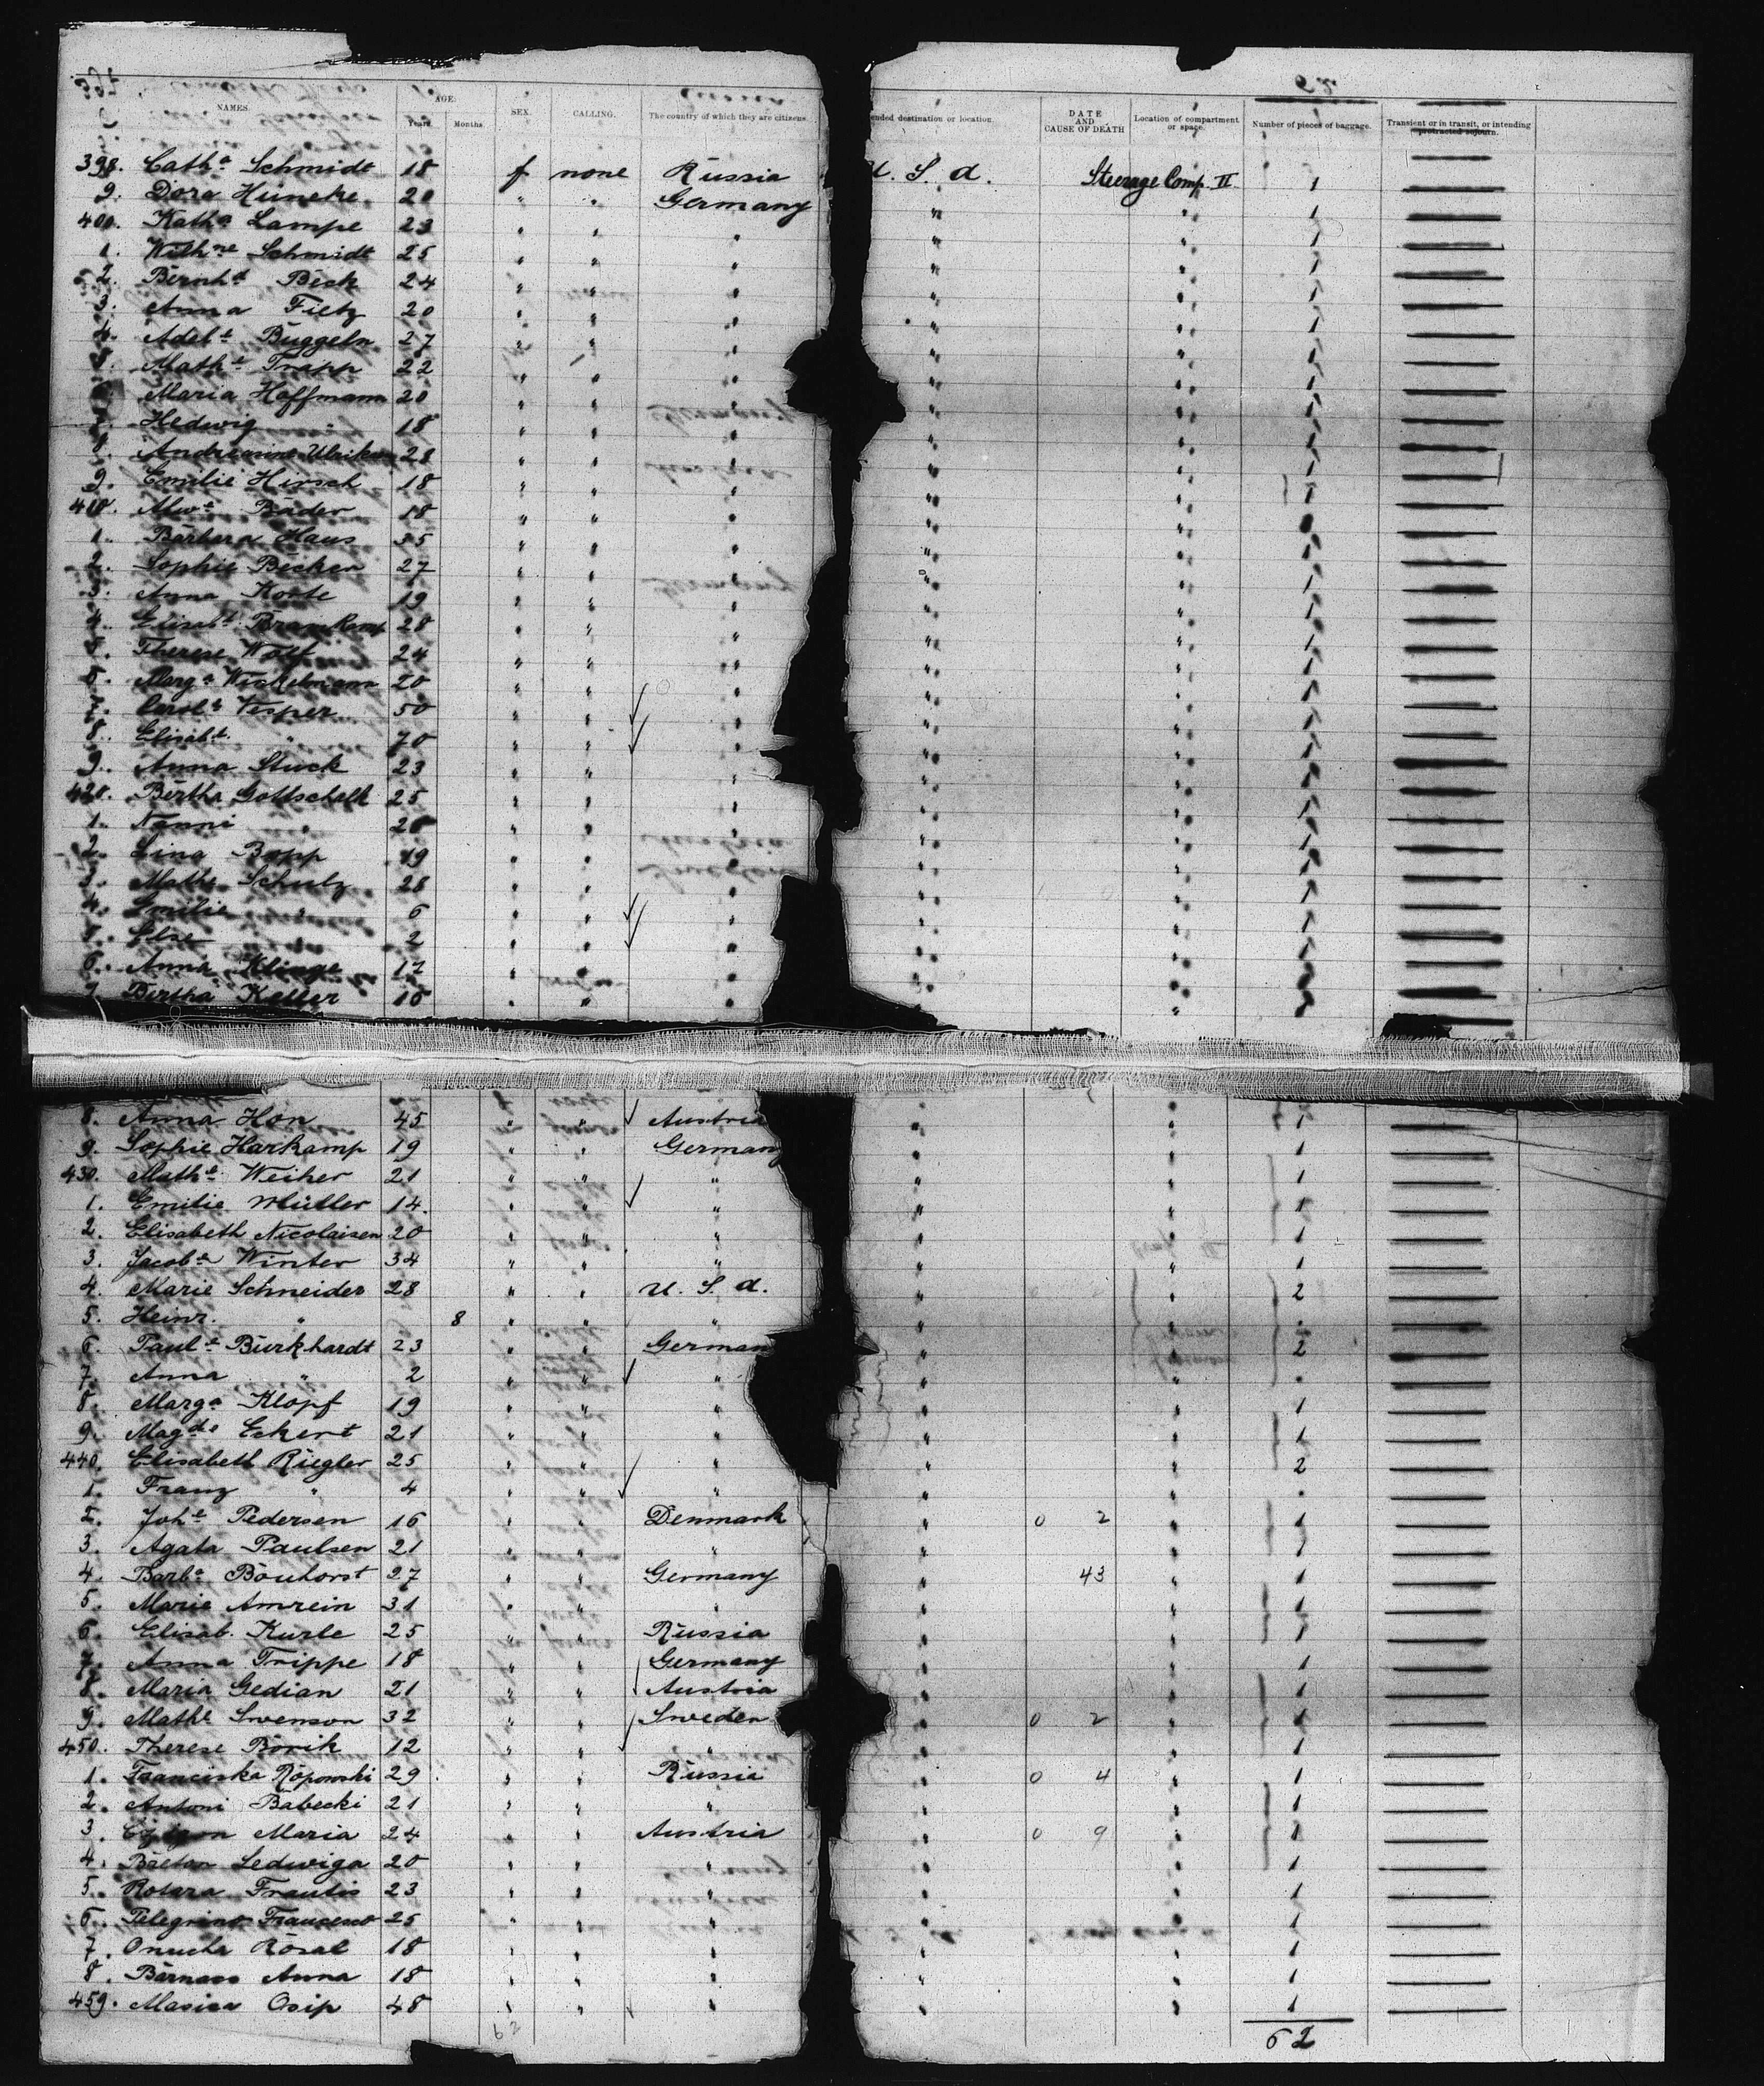 NAMES. AGE: Years. Months. SEX. CALLING. The country of which they are citizens. ended destination or location. DATE AND CAUSE OF DEATH Location of compartment or space. Number of pieces of baggage. Transient or in transit, or intending protracted sojourn.
62
398. Cath.a Schmidt 18 f none Russia U. S. a. Steerage Comp. II 1
9. Dora Hüneke 20 " " Germany " " 1
400. Kath.a Lampe 23 " " " " " 1
1. Wilh.ne Schmidt 25 " " " " " 1
2. Bernh.d Beck 24 " " " " " 1
3. Anna Fietz 20 " " " " " 1
4. Adel.e Büggeln 27 " " " " " 1
5. Math.e Trapp 22 " " " " " 1
Maria Hoffmann 20 " " " " " 1
7. Hedwig " 18 " " " " " 1
8. Ulrike 28 " " " " " 1
9. Emilie Hirsch 18 " " " " " 1
410. Alw.e Bader 18 " " " " "
1. Barbara Haus 35 " " " " " 1
2. Sophie Becker 27 " " " " " 1
3. Anna Korte 19 " " " " " 1
4. Elisab.t Bramkamp 28 " " " " " 1
5. Therese Wolf 24 " " " " " 1
6. Marg.a Wickelmann 20 " " " " " 1
7. Carol.e Vesper 50 " " " " " 1
8. Elisab.t " 70 " " " " " 1
9. Anna Stuck 23 " " " " " 1
420. Bertha Gottschalk 25 " " " " " 1
1. Nanni " " " " " " 1
2. Lina Bopp 19 " " " " " 1
3. Math.e Schulz 28 " " " " " 1
4. Emilie " 6 " " " " " 1
5. Else " 2 " " " " " 1
6. Anna Klinge 17 " " " " "
7. Bertha Keller 16 " " " " "
8. Anna Hon 45 " " Austria " " 1
9. Sophie Harkamp 19 " " German " " 1
430. Math.e Weiher 21 " " " " " 1
1. Emilie Müller 14. " " " " " 1
2. Elisabeth Nicolaisen 20 " " " " " 1
3. Jacob.e Winter 34 " " " " " 1
4. Marie Schneider 28 " " U. S. a. " " 2
5. Heinr. " 8 " " " " "
6. Paul.e Burkhardt 23 " " German " " 2
7. Anna " 2 " " " " "
8. Marg.a Klopf 19 " " " " " 1
9. Magd.e Eckert 21 " " " " " 1
440. Elisabeth Riegler 25 " " " " " 2
1. Franz " 4 " " " " "
2. Joh.e Pedersen 16 " " Denmark " 0 2 " 1
3. Agata Paulsen 21 " " " " " 1
4. Barb.a Bouhorst 27 " " Germany " 43 " 1
5. Marie Amrein 31 " " " " " 1
6. Elisab. Kurle 25 " " Russia " " 1
7. Anna Trippe 18 " " Germany " " 1
8. Maria Gedian 21 " " Austria " " 1
9. Math.e Swenson 32 " " Sweden " 0 2 " 1
450. Therese Borik 12 " " " " " 1
1. Franciska Ropowski 29 " " Russia " 0 4 " 1
2. Antoni Babecki 21 " " " " " 1
3. Maria 24 " " Austria " 0 9 " 1
4. Breton Ledwiga 20 " " " " " 1
5. Rotara Frantis 23 " " " " " 1
6. Pelegrino Francesco 25 " " " " " 1
7. Onucha Rosal 18 " " " " " 1
8. Barnass Anna 18 " " " " " 1
459. Masica Osip 48 " " " " " 1
62 62